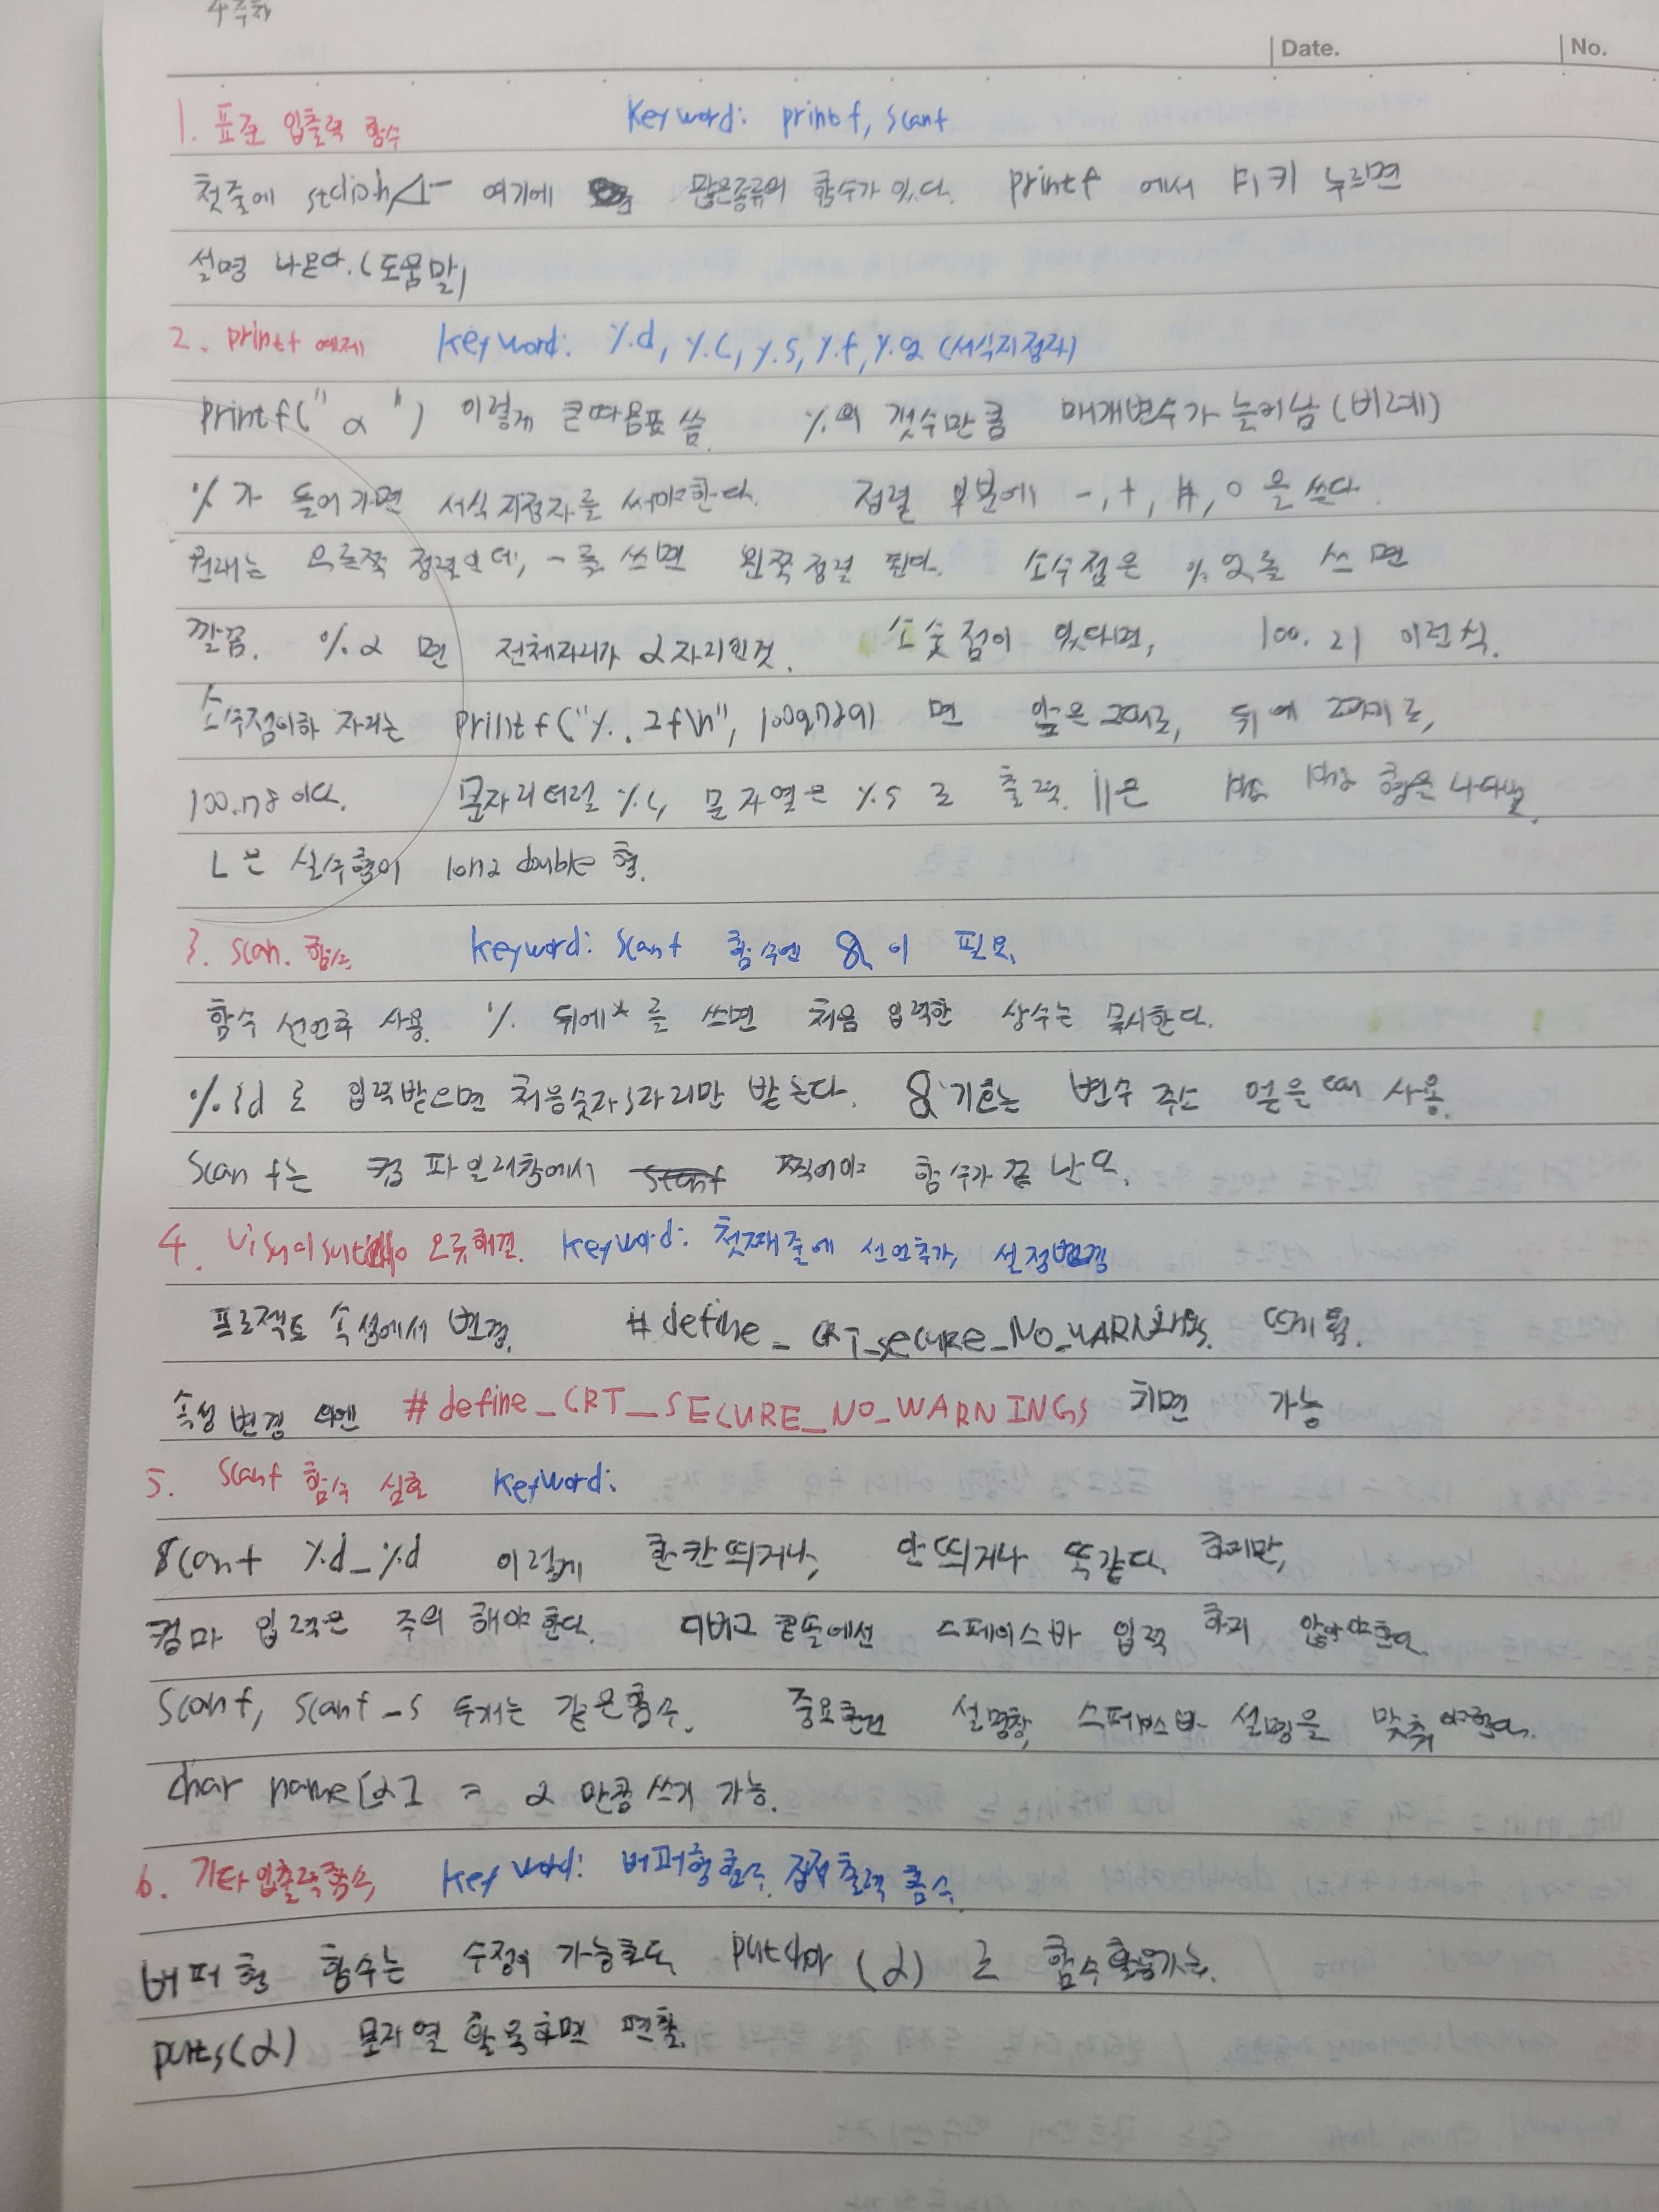 4주차
Date. No.
1. 표준 입출력 함수 Keyword: printf, scanf
첫줄에 stdioh 여기에 많은종류의 함수가 있다. printf 에서 F1키 누르면
설명 나온다.(도움말)
2. printf 예제 keyword: %d, %c, %s, %f, %α (서식지정자)
printf("α") 이렇게 큰따옴표 씀. %의 갯수만큼 매개변수가 늘어남 (비례)
%가 들어가면 서식지정자를 써야한다. 정렬 부분에 -, +, #, 0 을 쓴다.
원래는 오른쪽 정렬인데, -를 쓰면 왼쪽정렬 된다. 소수점은 %α를 쓰면
깔끔. %α 면 전체자리가 α자리인것. 소숫점이 있다면, 100.21 이런식.
소수점이하 자리는 printf("%.2f\n", 면 앞은 그대로, 뒤에 2자리로,
100.78이다. 문자리터럴 %c, 문자열은 %s 로 출력. ll은 형은 나타냄.
L은 실수형이 long double 형.
3. scan. 함수 keyword: scanf 함수엔 &이 필요.
함수 선언후 사용. % 뒤에 * 를 쓰면 처음 입력한 상수는 무시한다.
%3d로 입력받으면 처음숫자3자리만 받는다. &기호는 변수 주소 얻은 사용.
scanf는 컴파일러창에서 찍어야 함수가 끝난다.
4. 오류해결. keyword: 첫째줄에 선언추가, 설정변경
프로젝트 속성에서 변경. #define_CRT_secURE_NO_WARNINGS. 뜨게 됨.
속성변경 #define_CRT_SECURE_NO_WARNINGS 치면 가능
5. scanf 함수 실호 keyword:
scanf %d_%d 이렇게 한칸띄거나, 안띄거나 똑같다. 하지만,
컴마 입력은 주의 해야한다. 디버그 콘솔에선 스페이스바 입력 하지 않아야한다.
scanf, scanf_s 두개는 같은함수. 중요한건 설명창, 스페이스바 설명을 맞춰야한다.
char name[α] = α 만큼 쓰기 가능.
6. 기타입출력함수 Keyword: 버퍼형함수, 직접출력함수
버퍼형 함수는 수정이 가능하도록 putchar (α) 로 함수활용가능.
puts(α) 문자열 활용하면 편함.